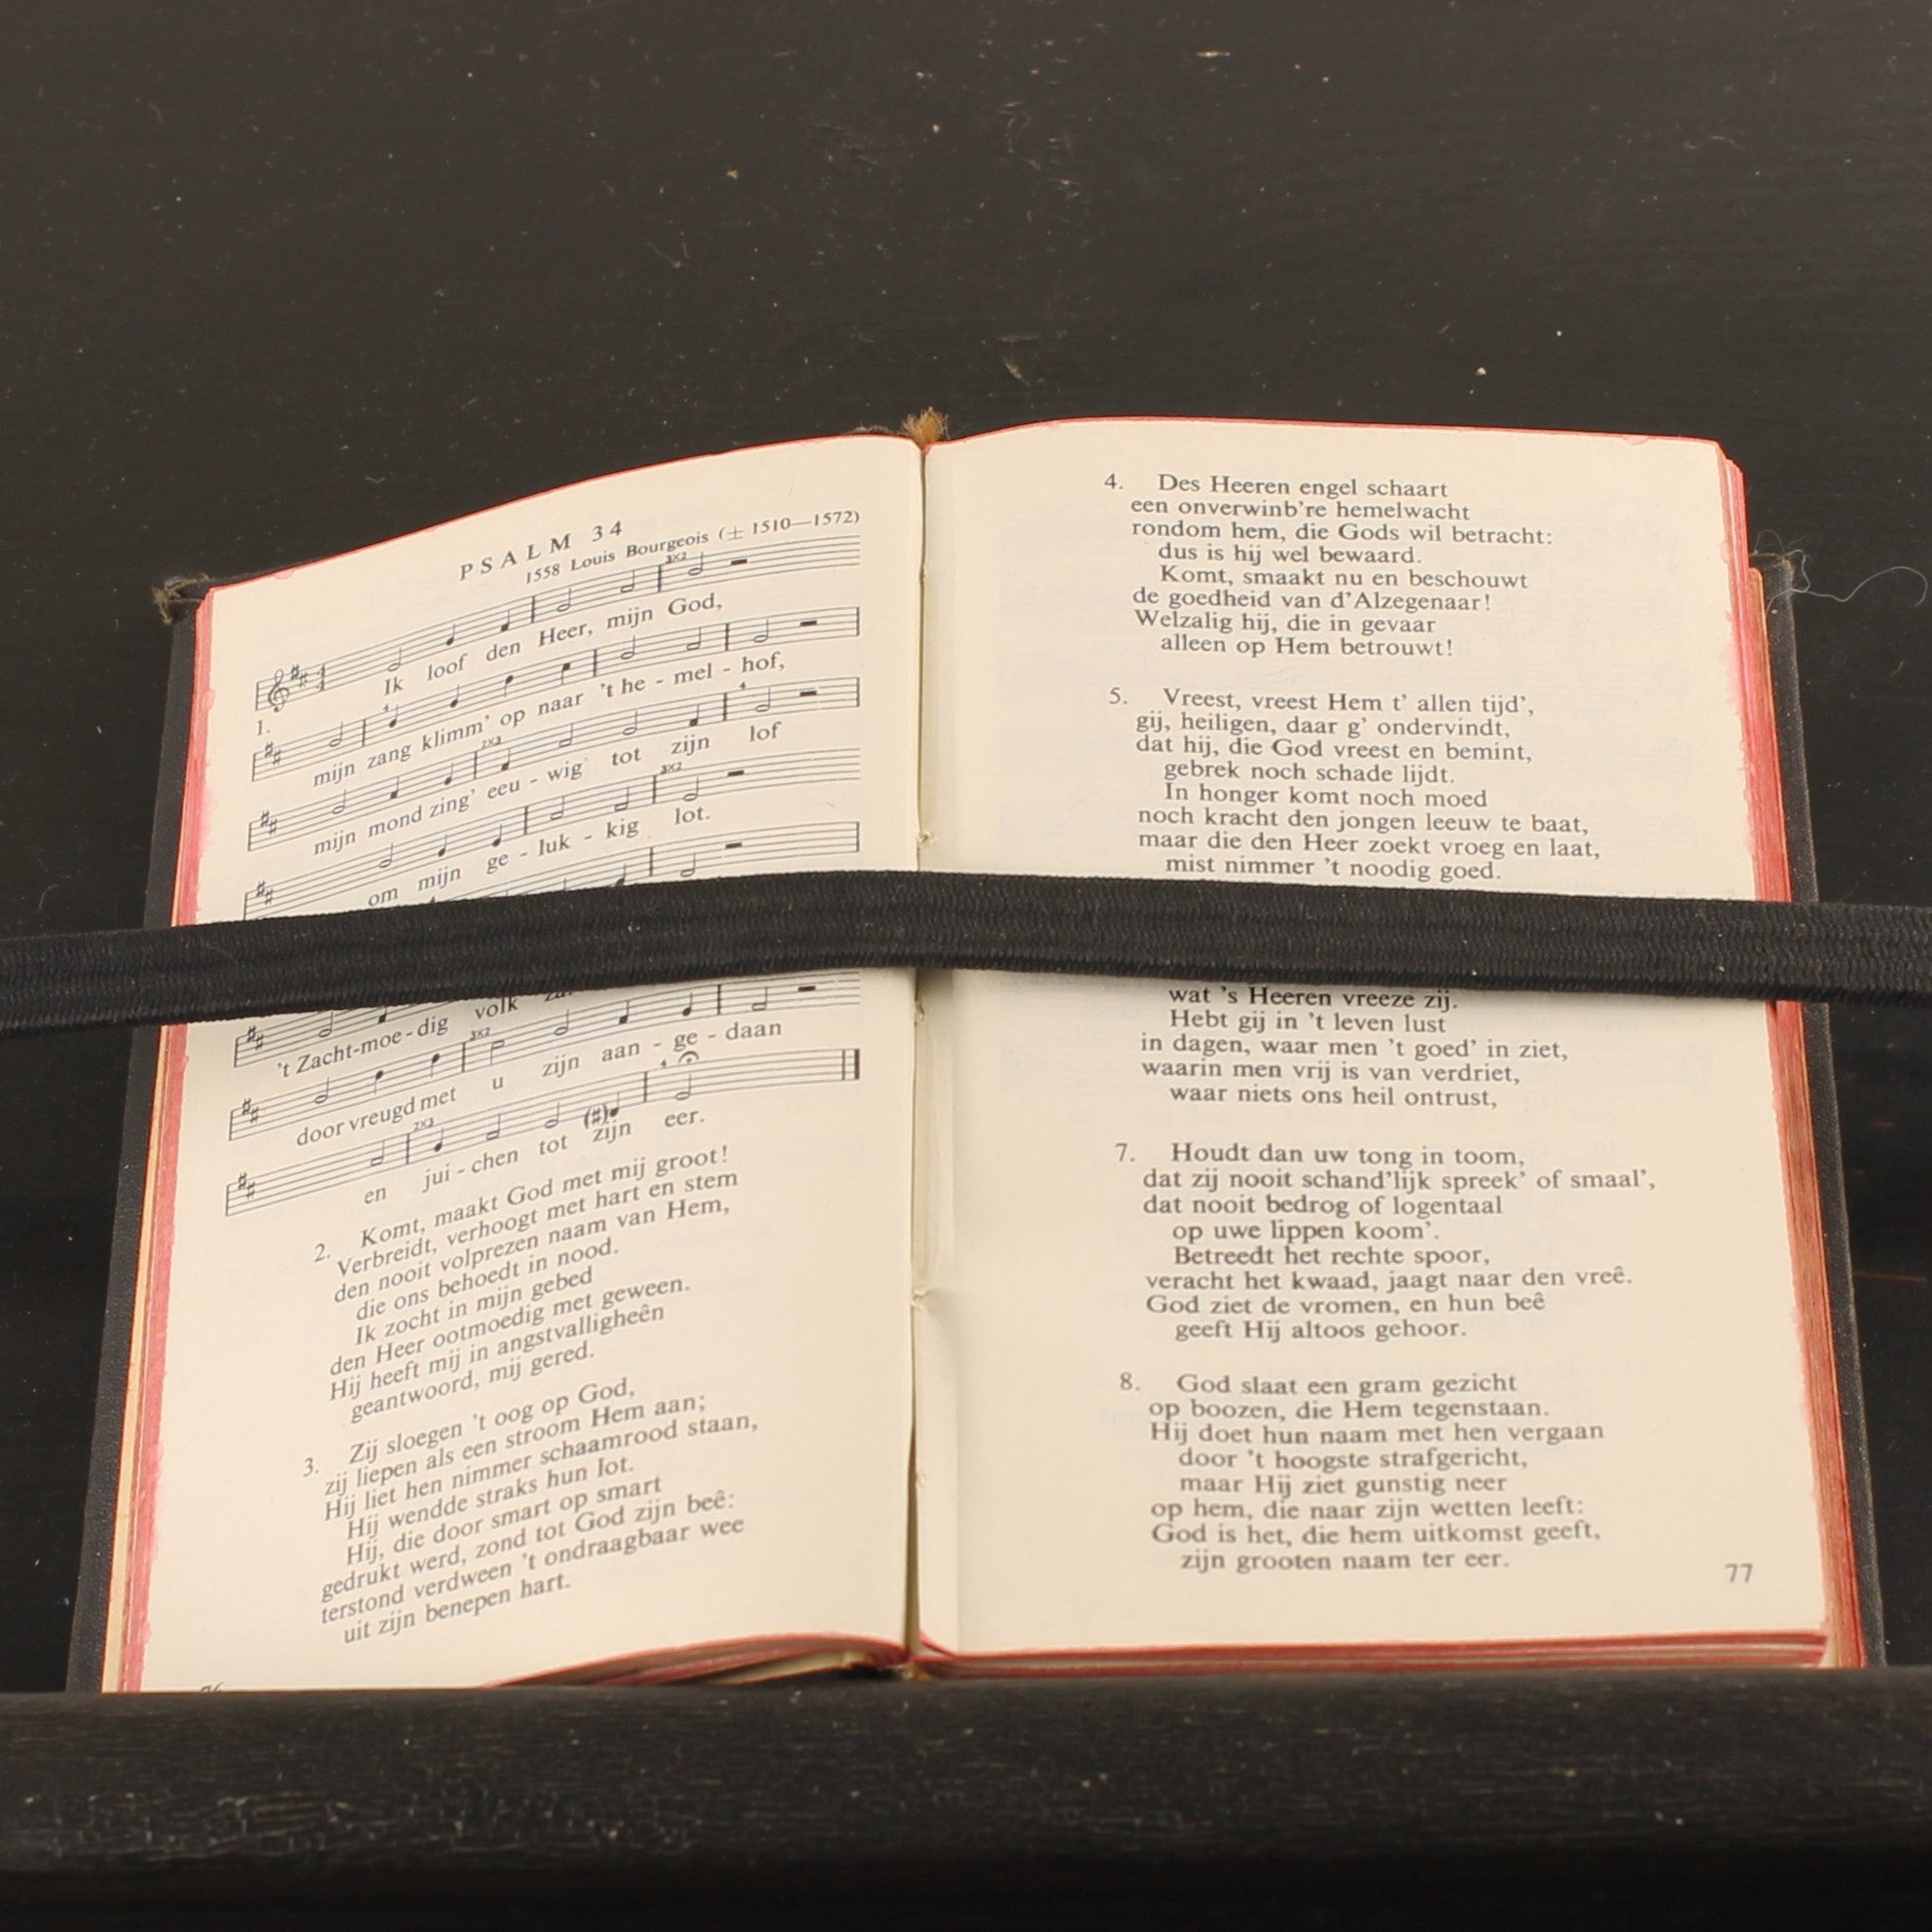 PSALM 34
1558 Louis Bourgeois (± 1510—1572)
1. Ik loof den Heer, mijn God,
mijn zang klimm' op naar 't he - mel - hof,
mijn mond zing' eeu - wig tot zijn lof
om mijn ge - luk - kig lot.
't Zacht-moe-dig volk
door vreugd met u zijn aan - ge - daan
en jui - chen tot zijn eer.
2. Komt, maakt God met mij groot!
Verbreidt, verhoogt met hart en stem
den nooit volprezen naam van Hem,
die ons behoedt in nood.
Ik zocht in mijn gebed
den Heer ootmoedig met geween.
Hij heeft mij in angstvalligheên
geantwoord, mij gered.
3. Zij sloegen 't oog op God,
zij liepen als een stroom Hem aan;
Hij liet hen nimmer schaamrood staan,
Hij wendde straks hun lot.
Hij, die door smart op smart
gedrukt werd, zond tot God zijn beê:
terstond verdween 't ondraagbaar wee
uit zijn benepen hart.
4. Des Heeren engel schaart
een onverwinb're hemelwacht
rondom hem, die Gods wil betracht:
dus is hij wel bewaard.
Komt, smaakt nu en beschouwt
de goedheid van d'Alzegenaar!
Welzalig hij, die in gevaar
alleen op Hem betrouwt!
5. Vreest, vreest Hem t' allen tijd',
gij, heiligen, daar g' ondervindt,
dat hij, die God vreest en bemint,
gebrek noch schade lijdt.
In honger komt noch moed
noch kracht den jongen leeuw te baat,
maar die den Heer zoekt vroeg en laat,
mist nimmer 't noodig goed.
wat 's Heeren vreeze zij.
Hebt gij in 't leven lust
in dagen, waar men 't goed' in ziet,
waarin men vrij is van verdriet,
waar niets ons heil ontrust,
7. Houdt dan uw tong in toom,
dat zij nooit schand'lijk spreek' of smaal',
dat nooit bedrog of logentaal
op uwe lippen koom'.
Betreedt het rechte spoor,
veracht het kwaad, jaagt naar den vreê.
God ziet de vromen, en hun beê
geeft Hij altoos gehoor.
8. God slaat een gram gezicht
op boozen, die Hem tegenstaan.
Hij doet hun naam met hen vergaan
door 't hoogste strafgericht,
maar Hij ziet gunstig neer
op hem, die naar zijn wetten leeft:
God is het, die hem uitkomst geeft,
zijn grooten naam ter eer.
77